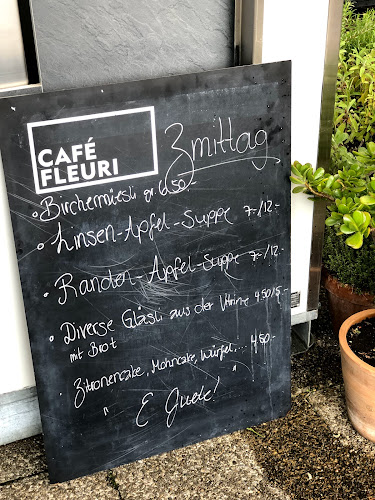 CAFÉ
FLEURI
Zmittag
• Birchermüesli gr. 6.50.-
• Linsen-Apfel-Suppe 7.-/12.-
• Randen-Apfel-Suppe 7.-/12.-
• Diverse Gläsli aus der Vitrine 4.50/5.-
mit Brot
• Zitronencake, Mohncake, Würfel,... 4.50.-
" E Guete! "